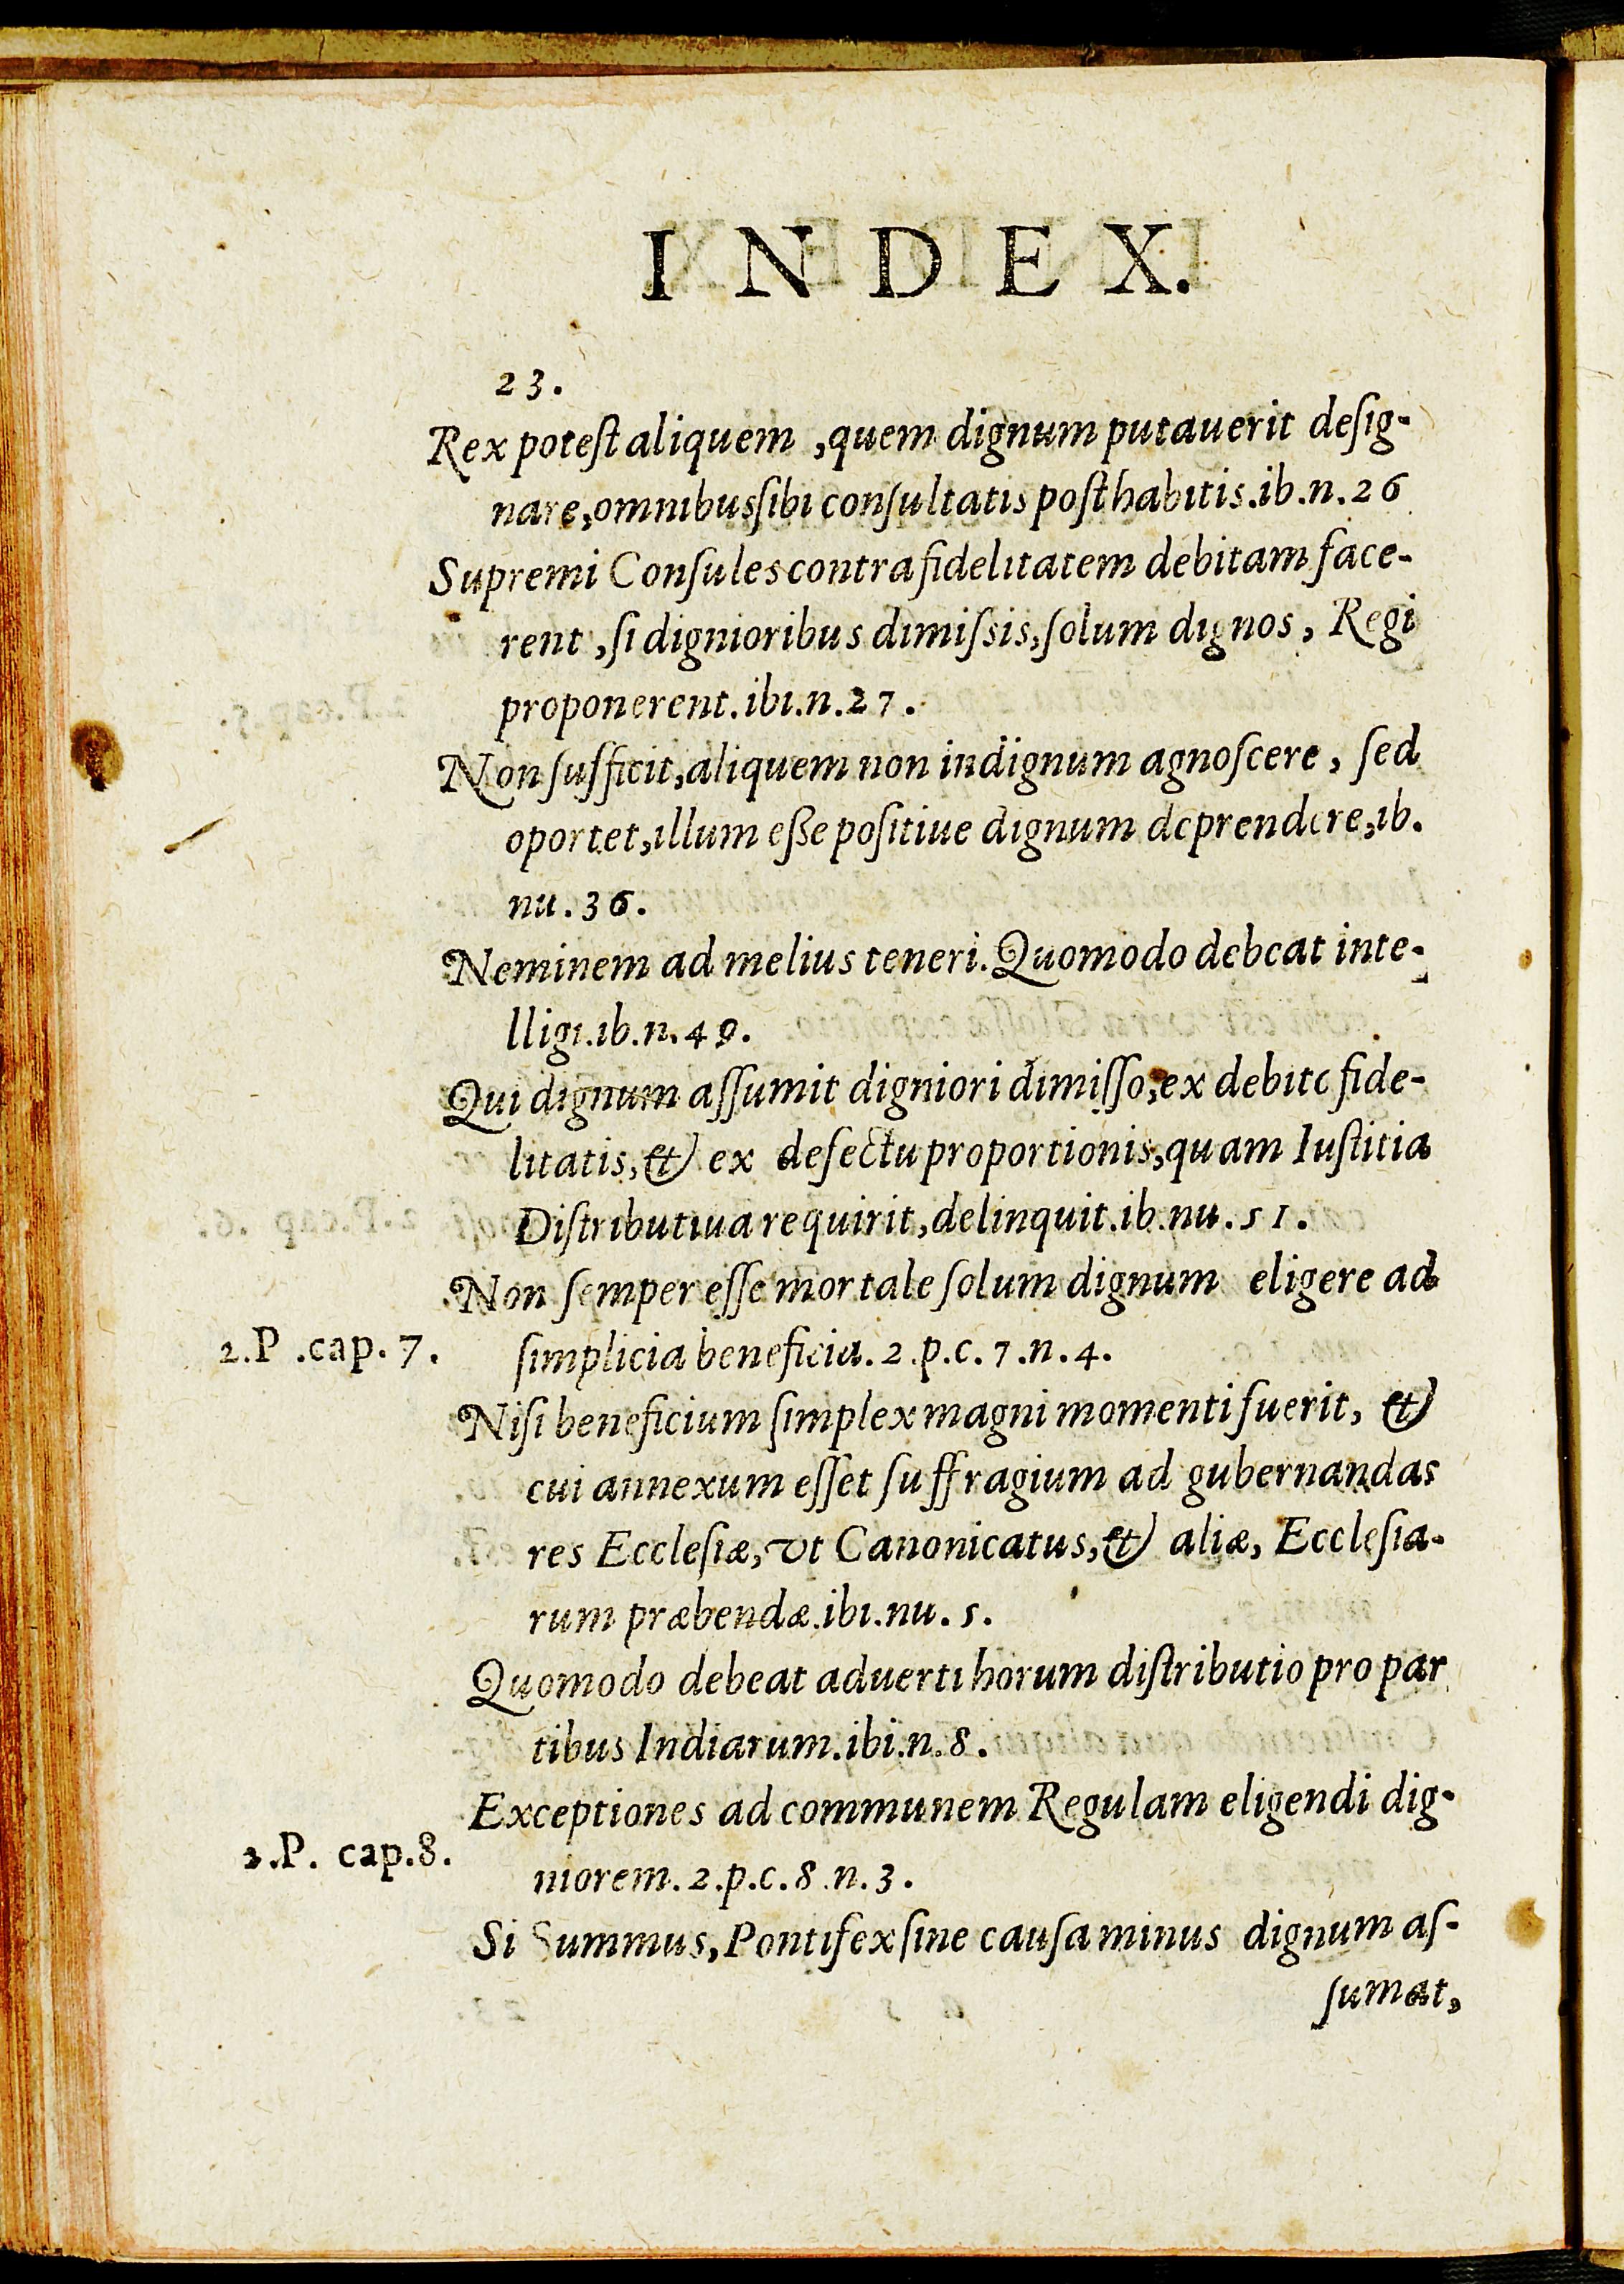 INDEX.
23.
Rex poteſt aliquem, quem dignum putauerit deſig-
nare, omnibus ſibi conſultatis poſthabitis. ib. n. 26
Supremi Conſules contra fidelitatem debitam face-
rent, ſi dignioribus dimiſsis, ſolum dignos, Regi
proponerent. ibi. n. 27.
Non ſufficit, aliquem non indignum agnoſcere, ſed
oportet, illum eſſe poſitiue dignum deprendere, ib.
nu. 36.
Neminem ad melius teneri. Quomodo debeat inte-
lligi. ib. n. 49.
Qui dignum aſſumit digniori dimiſſo, ex debito fide-
litatis, & ex defectu proportionis, quam Iuſtitia
Diſtributiua requirit, delinquit. ib. nu. 51.
Non ſemper eſſe mortale ſolum dignum eligere ad
2.P.cap.7. ſimplicia beneficia. 2.p.c.7.n.4.
Niſi beneficium ſimplex magni momenti fuerit, &
cui annexum eſſet ſuffragium ad gubernandas
res Eccleſiæ, vt Canonicatus, & aliæ, Eccleſia-
rum præbendæ. ibi. nu. 5.
Quomodo debeat aduerti horum diſtributio pro par
tibus Indiarum. ibi. n. 8.
Exceptiones ad communem Regulam eligendi dig-
2.P. cap.8. niorem. 2.p.c.8.n.3.
Si Summus, Pontifex ſine cauſa minus dignum aſ-
ſumat,